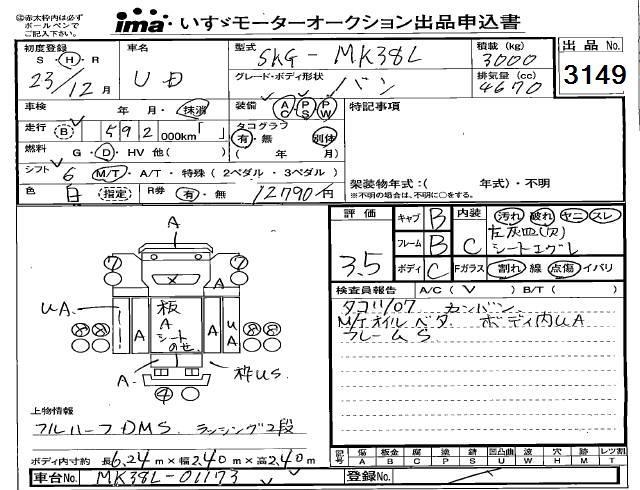 ①赤太枠内は必ず
ボールペンで
ご記入下さい。
ima いすゞモーターオークション出品申込書
初度登録 S・H・R 23/12月
車名 UD
型式 SKG-MK38L
グレード・ボディ形状 バン
積載 (kg) 3000
排気量 (cc) 4670
出品 No. 3149
車検 年 月・抹消
装備 AC PS PW
特記事項
走行 (B) 592 000km「 」
タコグラフ 有・無 別体 ( 年 月)
燃料 G・D・HV 他( )
シフト 6 M/T・A/T・特殊(2ペダル・3ペダル)
架装物年式:( 年式)・不明
※不明の場合は、不明に○をする。
色 白 (指定) R券 有・無 12790円
評価 3.5
キャブ B
フレーム B
ボディ C
内装 C 汚れ 破れ ヤニ スレ
左灰皿(欠)
シートエグレ
Fガラス 割れ 線 点傷 イバリ
検査員報告 A/C( V ) B/T( )
タコ11/07 カンバン
M/Tオイルベタ ボディ内UA
フレームS
A
UA
A
板
A
シート
のせ
UA
A
A
枠US
上物情報
フルハーフDMS ラッシング2段
ボディ内寸約 長6.24m×幅2.40m×高2.40m
記号 傷A 板金B 腐C 塗P 錆S 凹凸曲U 波W 穴H 跡M レツ割T
車台No. MK38L-01173
登録No.